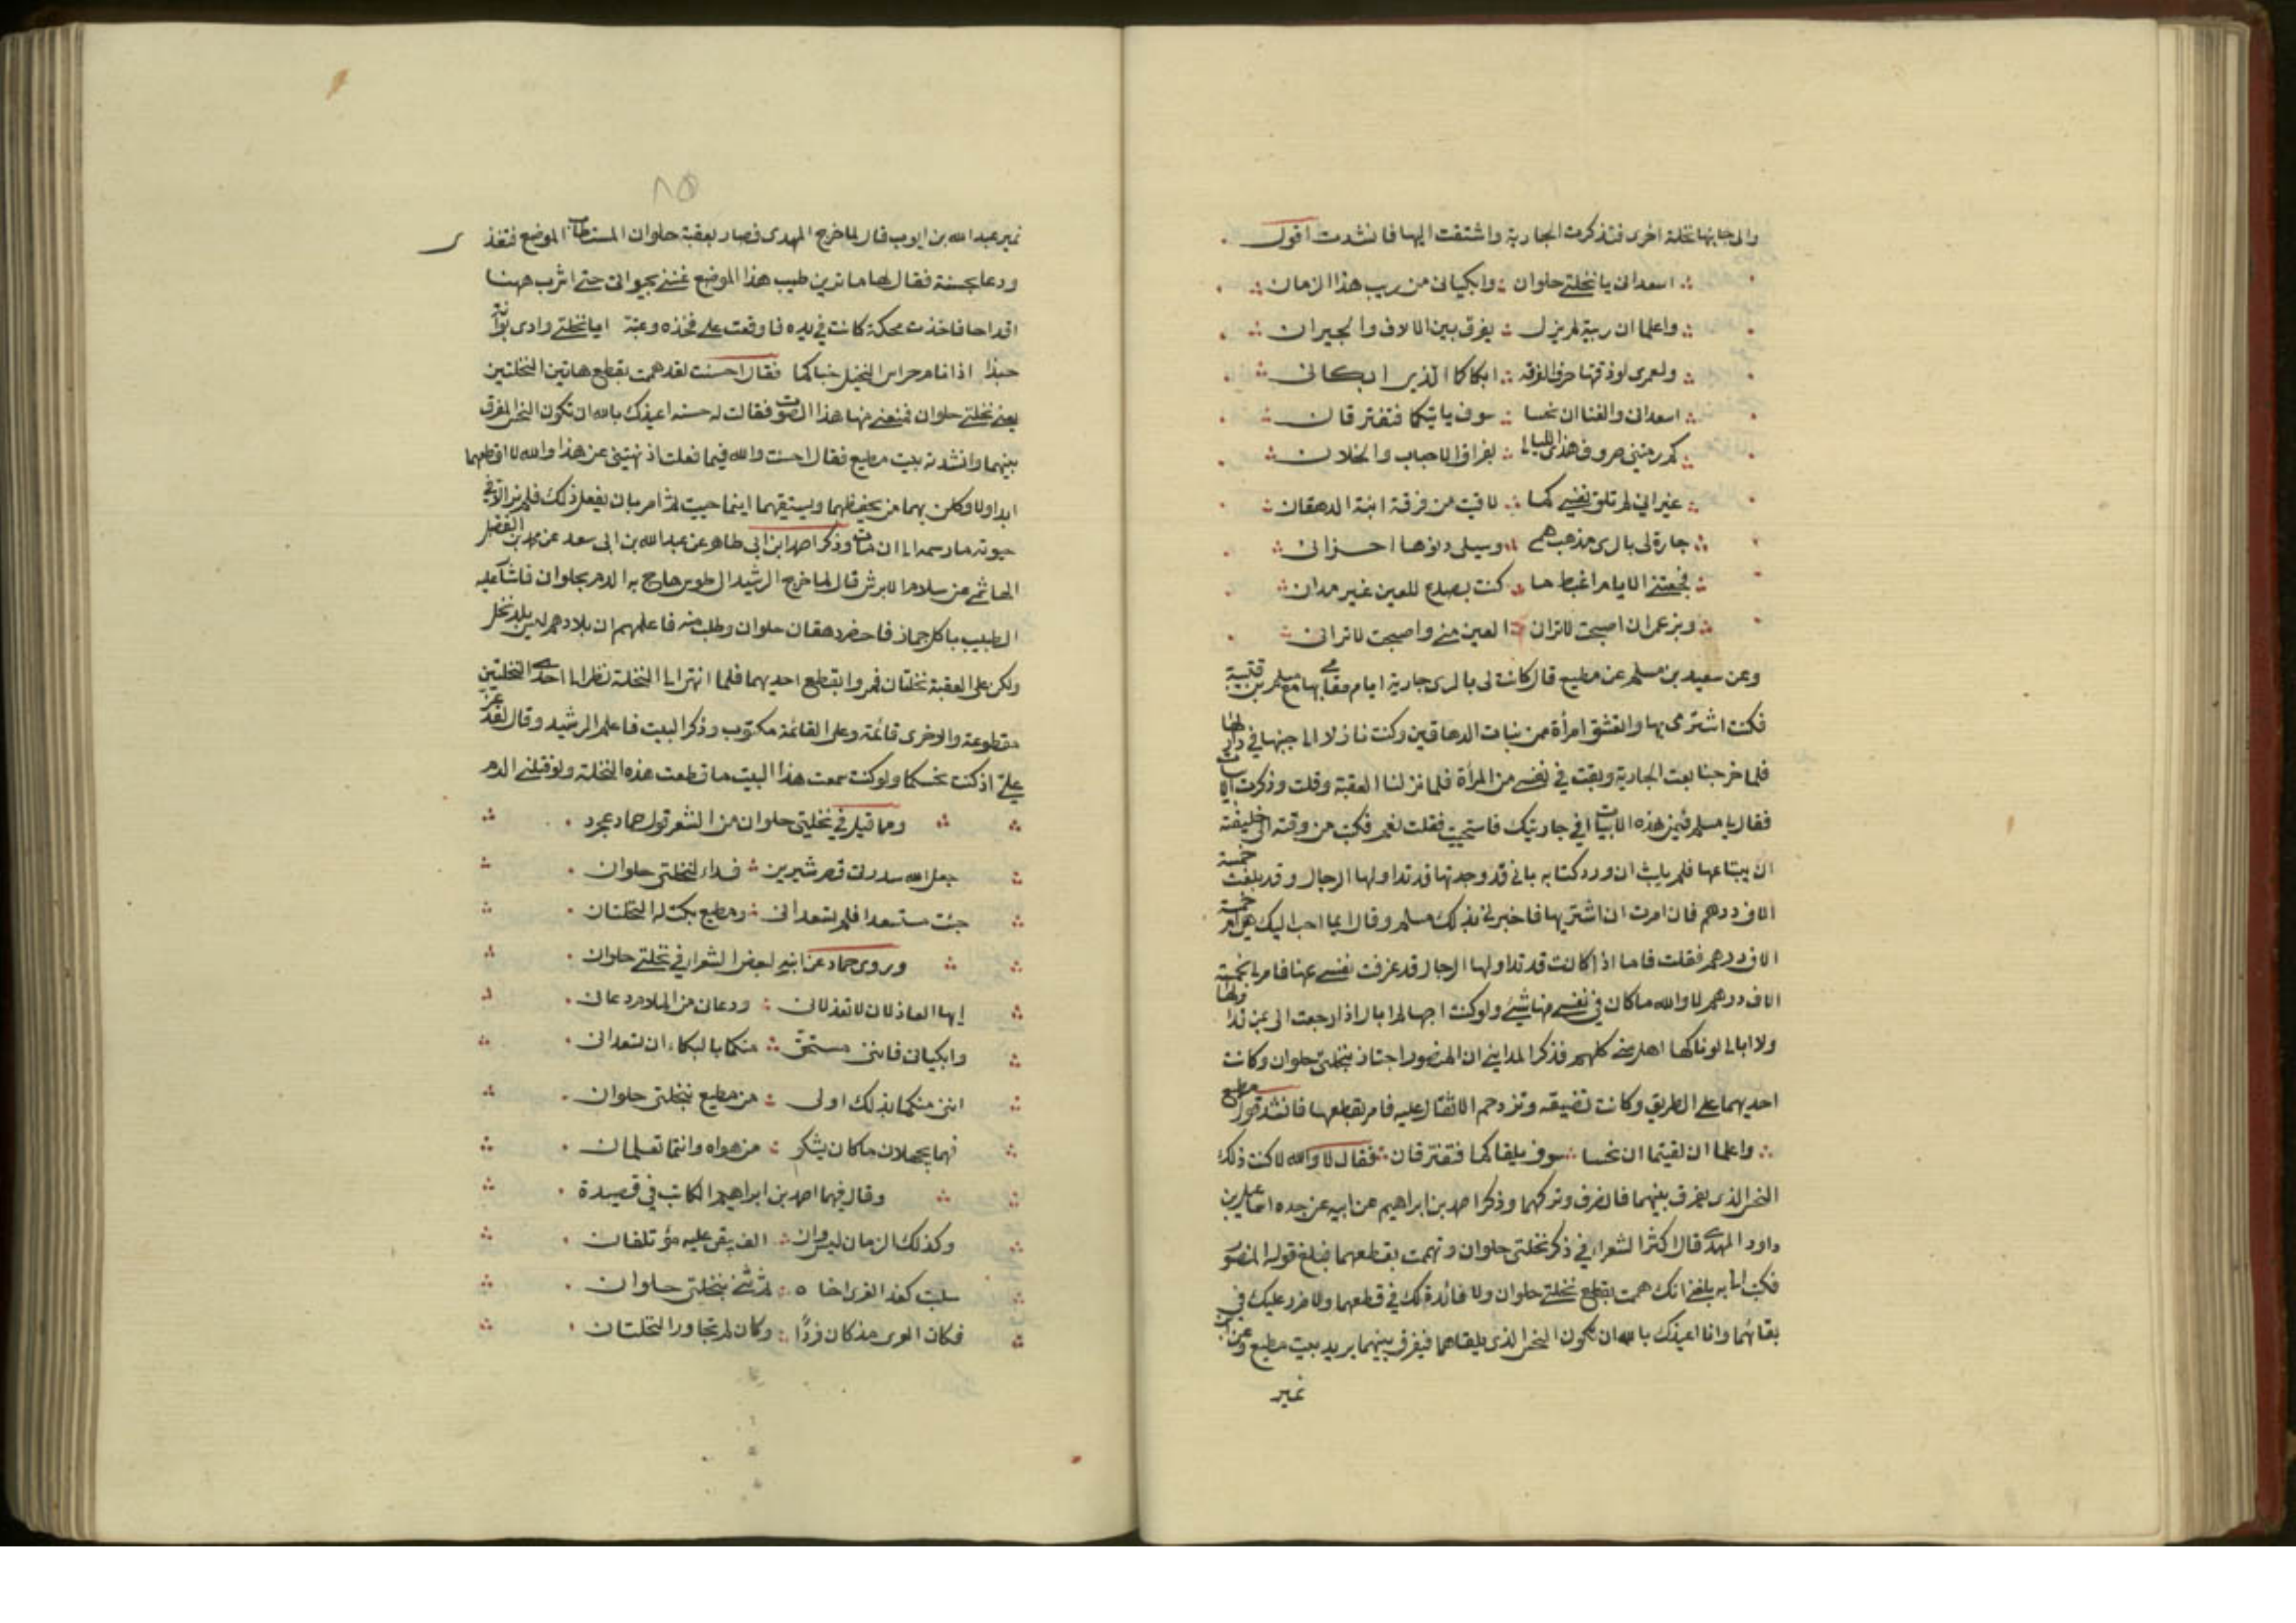 والى جانبها نخلة اخرى فتذكرت الجارية واشتقت اليها فانشدت اقول
اسعدانى يا نخلتى حلوان وابكيانى من ريب هذا الزمان
واعلما ان ريبه لم يزل يفرق بين الالاف والجيران
ولعمرى لو ذقتما حرق الفرقه ابكاكما الذى ابكانى
اسعدانى والقنا ان نحسا سوف ياتيكما فتفترقان
كم رمتنى صروف هذى الليالى بفراق الاحباب والخلان
غير انى لم تلق نفسى كما لاقيت من فرقة ابنة الدهقان
جارة لى بالرى تذهب همى ويسلى دنوها احزانى
فجعتنى الايام اغبط ما كنت بصدع للعين غير مدان
وبزعمى ان اصبحت لا تراها العين منى واصبحت لا ترانى
وعن سعيد بن مسلم عن مطيع قال كانت لى بالرى جارية ايام مقامى بها مع مسلم بن قتيبة
فكنت اتستر بها واتعشق امرأة من بنات الدهاقين وكنت نازلا الى جنبها فى دار لها
فلما خرجنا بعت الجارية وبقت فى نفسى من المرأة فلما نزلنا العقبة وقلت وذكرت ابيات
فقال يا مسلم فيمن هذه الابيات افى جاريتك فاستحيت فقلت نعم فكتب من وقته الى خليفته
ان يبتاعها فلم يلبث ان ورد كتابه بانى قد وجدتها قد تداولها الرجال وقد بلغت خمسة
الاف درهم فان امرت ان اشتريها فاخبرنى بذلك مسلم وقال ايما احب اليك هى ام خمسة
الاف درهم فقلت فاما اذا كانت قد تداولها الرجال قد عزفت نفسى عنها فامر لى بخمسة
الاف درهم لا والله ما كان فى نفسى منها شيئ ولو كنت احبها لم ابال اذا رجعت الى بمن تداولها
ولا ابالى لو ناكها اهل منى كلهم فذكر المداينى ان المنصور اجتاز بنخلتى حلوان وكانت
احديهما على الطريق وكانت تضيقه وتزدحم الاثقال عليه فامر بقطعها فانشد قول مطيع
واعلما ان لقيتما ان نحسا سوف يلقاكما فتفترقان فقال لا والله لا كنت ذلك
النحس الذى يفرق بينهما فانصرف وتركهما وذكر احمد بن ابراهيم عن ابيه عن جده اسماعيل بن
داود المهدى قال اكثر الشعراء فى ذكر نخلتى حلوان وتهممت بقطعهما فبلغ قوله المنصور
فكتب اليه بلغنى انك هممت بقطع نخلتى حلوان ولا فائدة لك فى قطعهما ولا ضرر عليك فى
بقائهما وانا اعيذك بالله ان تكون النحس الذى يلقاهما فيفرق بينهما يريد بيت مطيع وعن ابى
نمير
٨٥
نمير عبد الله بن ايوب قال لما خرج المهدى فصار بعقبة حلوان استطاب الموضع فتغذى
ودعا بحسنة فقال لها ما ترين طيب هذا الموضع غنى بحيوانى حتى اشرب ههنا
اقداحا فاخذت محكة كانت فى يده فاوقعت على فخذه وغنته ايا نخلتى وادى بوانة
حبذا اذا نام حراس النخيل جناكما فقال احسنت لقد هممت بقطع هاتين النخلتين
يعنى نخلتى حلوان فمنعنى منها هذا الصوت فقالت له حسنه اعيذك بالله ان تكون النحس المفرق
بينهما وانشدته بيت مطيع فقال احسنت والله فيما فعلت اذ نهيتنى عن هذا والله لا اقطعهما
ابدا ولاوكلن بهما من يحفظهما ويسقيهما اينما حييت ثم امر بان يفعل ذلك فلم تزالا فى
حيوته ما رسمه الى ان مات وذكر احمد ابن ابى طاهر عن عبد الله بن ابى سعد عن محمد بن الفضل
الهاشمى عن سلام الابرش قال لما خرج الرشيد الى طوس هاج به الدم بحلوان فاشار عليه
الطبيب باكل جمار فاحضر دهقان حلوان وطلب منه فاعلمهم ان بلادهم ليس بلد نخل
ولكن على العقبة نخلتان فمروا بقطع احديهما فلما انتهى الى النخلة نظر الى احدى النخلتين
مقطوعة والاخرى قائمة وعلى القائمة مكتوب وذكر البيت فاعلم الرشيد وقال لقد عز
على اذ كنت نحسكما ولو كنت سمعت هذا البيت ما قطعت هذه النخلة ولو قتلنى الدم
ومما قيل فى نخلتى حلوان من الشعر قول حماد عجرد
جعل الله سدرتى قصر شيرين فداء لنخلتى حلوان
جئت مستسعدا فلم تسعدانى ومطيع بكت له النخلتان
وروى حماد عن ابيه لبعض الشعراء فى نخلتى حلوان
ايها العاذلان لا تعذلانى ودعانى من الملام دعانى
وابكيانى فاننى مستحق منكما بالبكاء ان تسعدانى
اننى منكما بذلك اولى من مطيع بنخلتى حلوان
فهما يجهلان ما كان يشكو من هواه وانتما تعلمان
وقال فيهما احمد بن ابراهيم الكاتب فى قصيدة
وكذلك الزمان ليس وان الف يبقى عليه مؤتلفان
سلبت كفه الغرى اخاه ثم ثنى بنخلتى حلوان
فكان الغرى مذ كان فردا وكان لم تجاور النخلتان